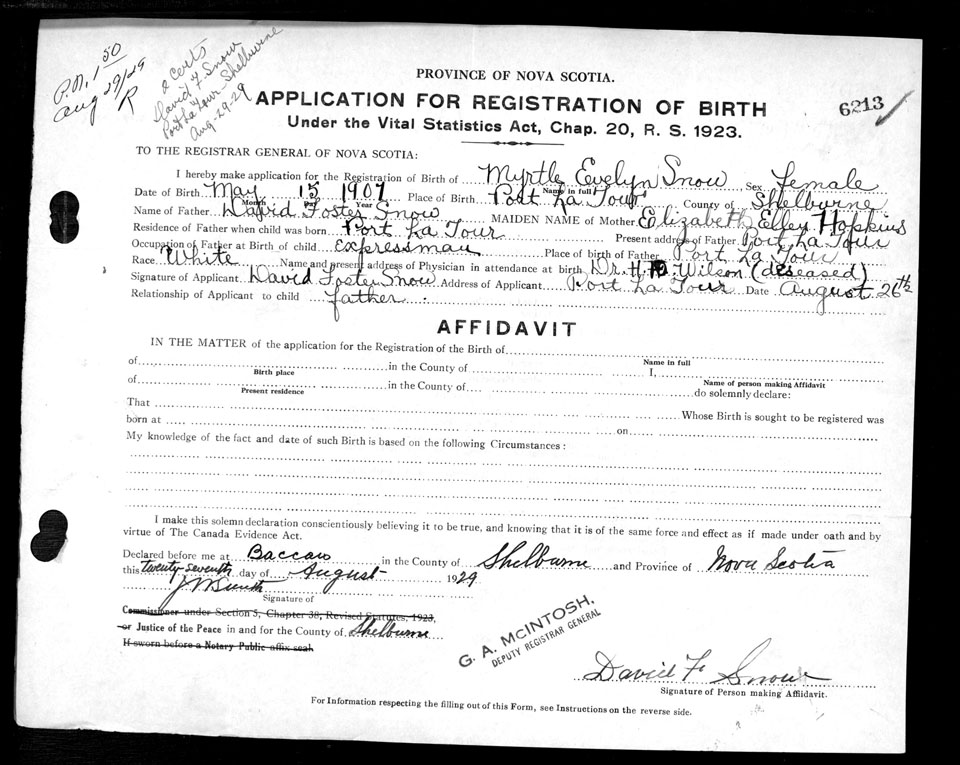 P.N. 1 50
Aug 29/29
R
2 Certs
David F. Snow
Port La Tour Shelburne
Aug-29-29
PROVINCE OF NOVA SCOTIA.
APPLICATION FOR REGISTRATION OF BIRTH
6213
Under the Vital Statistics Act, Chap. 20, R. S. 1923.
TO THE REGISTRAR GENERAL OF NOVA SCOTIA:
I hereby make application for the Registration of Birth of Myrtle Evelyn Snow Sex female
Name in full
Date of Birth May 15 1907 Place of Birth Port La Tour County of Shelburne
Month Day Year
Name of Father David Foster Snow MAIDEN NAME of Mother Elizabeth Hopkins
Residence of Father when child was born Port La Tour Present address of Father Port La Tour
Occupation of Father at Birth of child expressman Place of birth of Father Port La Tour
Race White Name and present address of Physician in attendance at birth Dr. H. Wilson (deseased)
Signature of Applicant David Foster Snow Address of Applicant Port La Tour Date August 26th
Relationship of Applicant to child father.
AFFIDAVIT
IN THE MATTER of the application for the Registration of the Birth of
Name in full
of in the County of I,
Birth place Name of person making Affidavit
of in the County of do solemnly declare:
Present residence
That Whose Birth is sought to be registered was
born at on
My knowledge of the fact and date of such Birth is based on the following Circumstances:
I make this solemn declaration conscientiously believing it to be true, and knowing that it is of the same force and effect as if made under oath and by
virtue of The Canada Evidence Act.
Declared before me at Baccaro in the County of Shelburne and Province of Nova Scotia
this twenty-seventh day of August 1929
Signature of
Commissioner under Section 5, Chapter 38, Revised Statutes, 1923,
or Justice of the Peace in and for the County of Shelburne
If sworn before a Notary Public affix seal
G. A. McINTOSH,
DEPUTY REGISTRAR GENERAL
David F. Snow
Signature of Person making Affidavit.
For Information respecting the filling out of this Form, see Instructions on the reverse side.